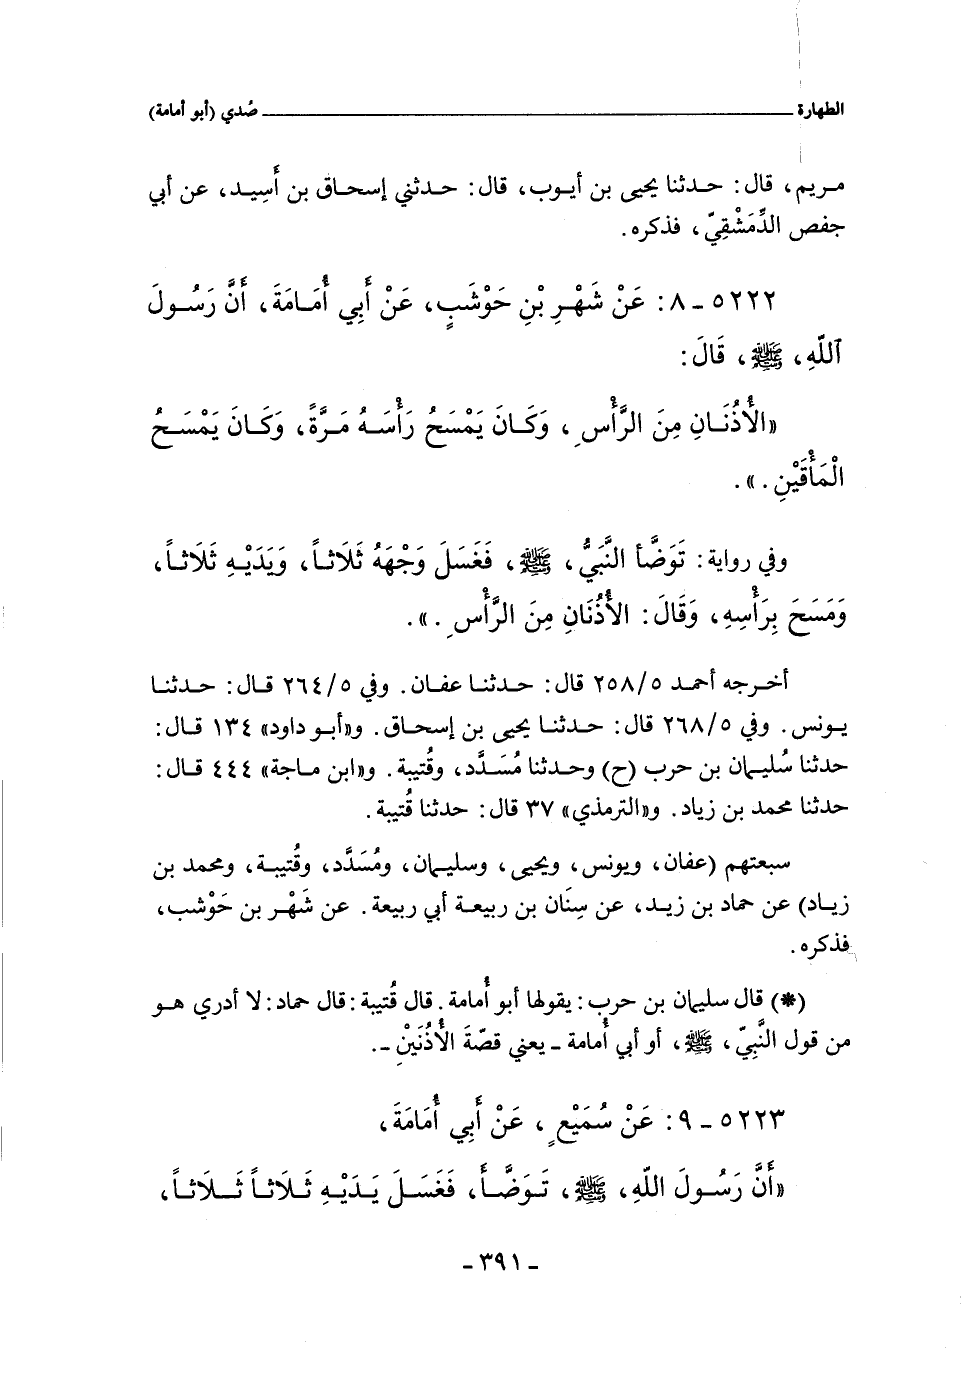 الطهارة ــــــــــ صُدي (أبو أمامة)
مـريم، قال: حـدثنا يحيى بن أيـوب، قال: حـدثني إسحـاق بن أَسِيـد، عن أبي
حفص الدِّمَشْقِيّ، فذكره.
٥٢٢٢ ـ ٨: عَنْ شَهْـرِ بْنِ حَوْشَبٍ، عَنْ أَبِي أُمَـامَةَ، أَنَّ رَسُـولَ
ٱللَّهِ، ﷺ، قَالَ:
«الْأُذُنَـانِ مِنَ الرَّأْسِ، وَكَـانَ يَمْسَحُ رَأْسَـهُ مَـرَّةً، وَكَـانَ يَمْسَـحُ
الْمَأْقَيْنِ.».
وفي رواية: تَوَضَّأَ النَّبِيُّ، ﷺ، فَغَسَلَ وَجْهَهُ ثَلَاثـاً، وَيَدَيْـهِ ثَلَاثـاً،
وَمَسَحَ بِرَأْسِهِ، وَقَالَ: الْأُذُنَانِ مِنَ الرَّأْسِ.».
أخـرجه أحمـد ٢٥٨/٥ قال: حـدثنـا عفـان. وفي ٢٦٤/٥ قـال: حـدثنـا
يـونس. وفي ٢٦٨/٥ قال: حـدثنـا يحيى بن إسحـاق. و«أبـو داود» ١٣٤ قـال:
حدثنا سُليمان بن حرب (ح) وحـدثنا مُسَدَّد، وقُتيبة. و«ابن مـاجة» ٤٤٤ قـال:
حدثنا محمد بن زياد. و«الترمذي» ٣٧ قال: حدثنا قُتيبة.
سبعتهم (عفان، ويونس، ويحيى، وسليمان، ومُسَدَّد، وقُتيبـة، ومحمد بن
زيـاد) عن حماد بن زيـد، عن سِنَان بن ربيعـة أبي ربيعة. عن شَهْـر بن حَوْشب،
فذكره.
(*) قال سليمان بن حرب: يقولها أبو أُمامة. قال قُتيبة: قال حماد: لا أدري هـو
من قول النَّبِيّ، ﷺ، أو أبي أُمامة ـ يعني قصّةَ الْأُذُنَيْنِ ـ.
٥٢٢٣ ـ ٩: عَنْ سُمَيْعٍ، عَنْ أَبِي أُمَامَةَ،
«أَنَّ رَسُـولَ اللَّهِ، ﷺ، تَـوَضَّـأَ، فَغَسَـلَ يَـدَيْـهِ ثَـلَاثـاً ثَـلَاثـاً،
ـ ٣٩١ ـ